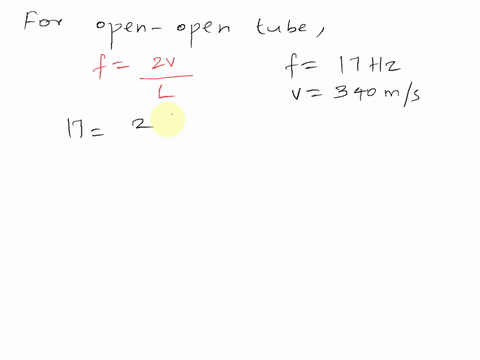 For open-open tube,
f = 2v / L
f = 17 Hz
v = 340 m/s
17 = 2